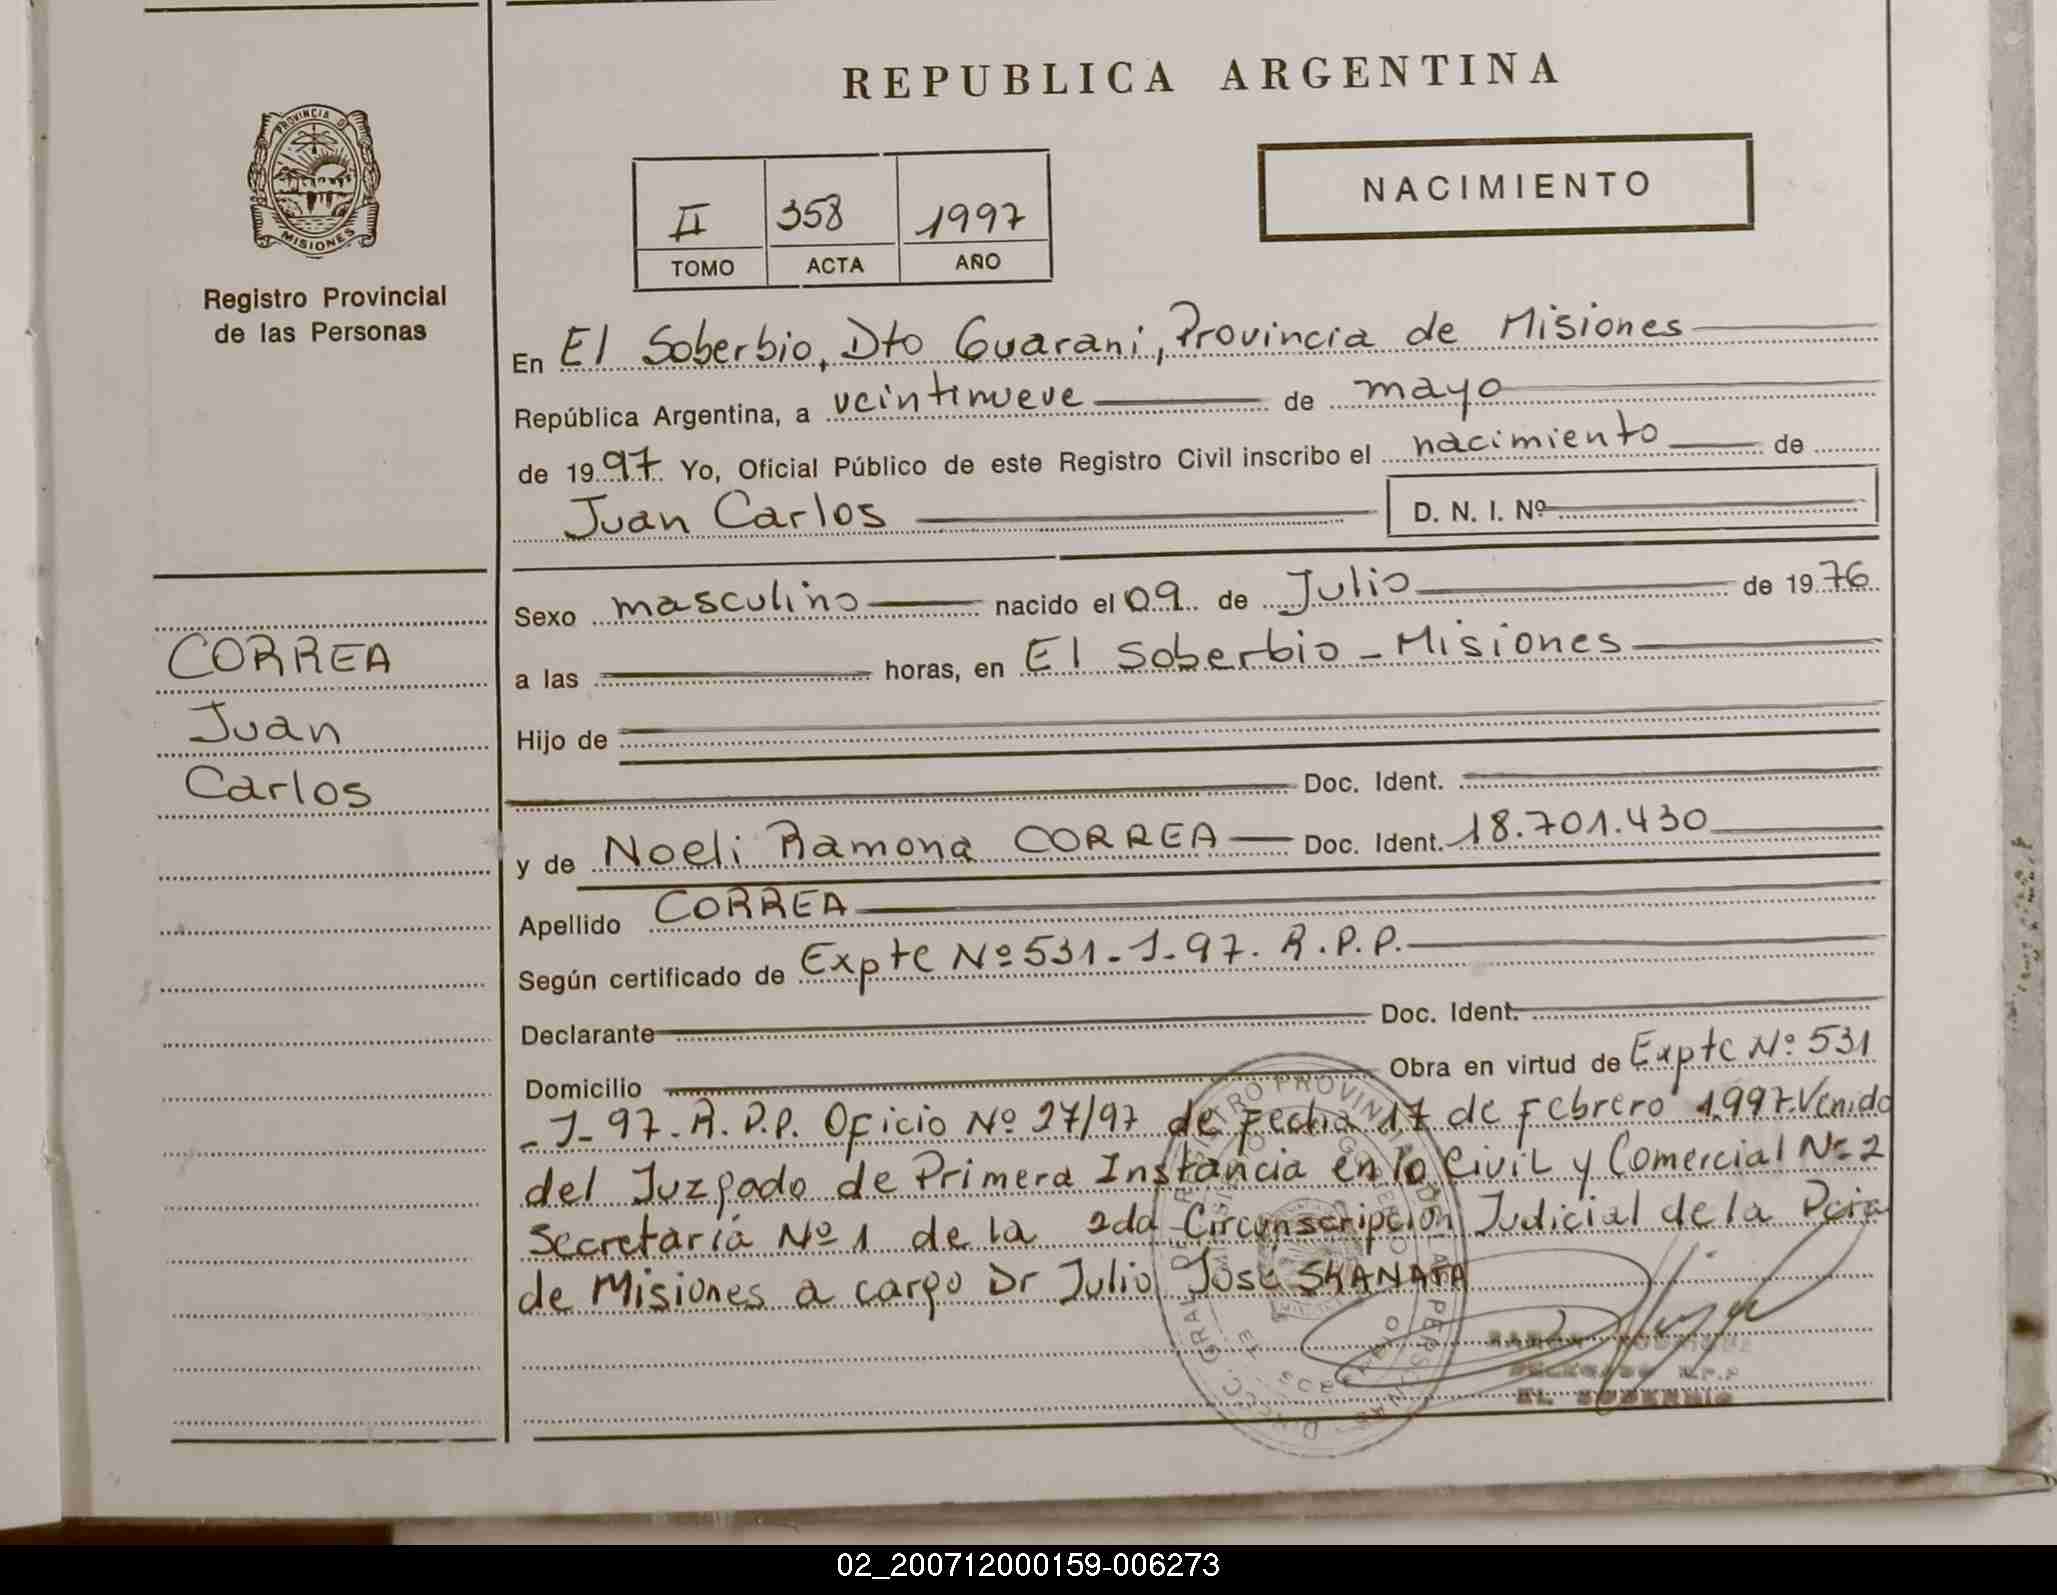 REPUBLICA ARGENTINA
PROVINCIA D
MISIONES
Registro Provincial
de las Personas
NACIMIENTO
II 358 1997
TOMO ACTA AÑO
En El Soberbio, Dto Guarani, Provincia de Misiones
República Argentina, a veintinueve de mayo
de 1997 Yo, Oficial Público de este Registro Civil inscribo el nacimiento de
Juan Carlos D. N. I. Nº
Sexo masculino nacido el 09 de Julio de 1976
a las horas, en El Soberbio - Misiones
Hijo de
Doc. Ident.
y de Noeli Ramona CORREA Doc. Ident. 18.701.430
Apellido CORREA
Según certificado de Expte Nº 531-J-97. R.P.P.
Declarante Doc. Ident.
Domicilio Obra en virtud de Expte Nº 531
-J-97. R.P.P. Oficio Nº 27/97 de fecha 17 de Febrero 1997. Venido
del Juzgado de Primera Instancia en lo Civil y Comercial Nº 2
Secretaría Nº 1 de la 2da Circunscripción Judicial de la Pcia
de Misiones a cargo Dr Julio José SKANATA
CORREA
Juan
Carlos
EL SOBERBIO
02_200712000159-006273